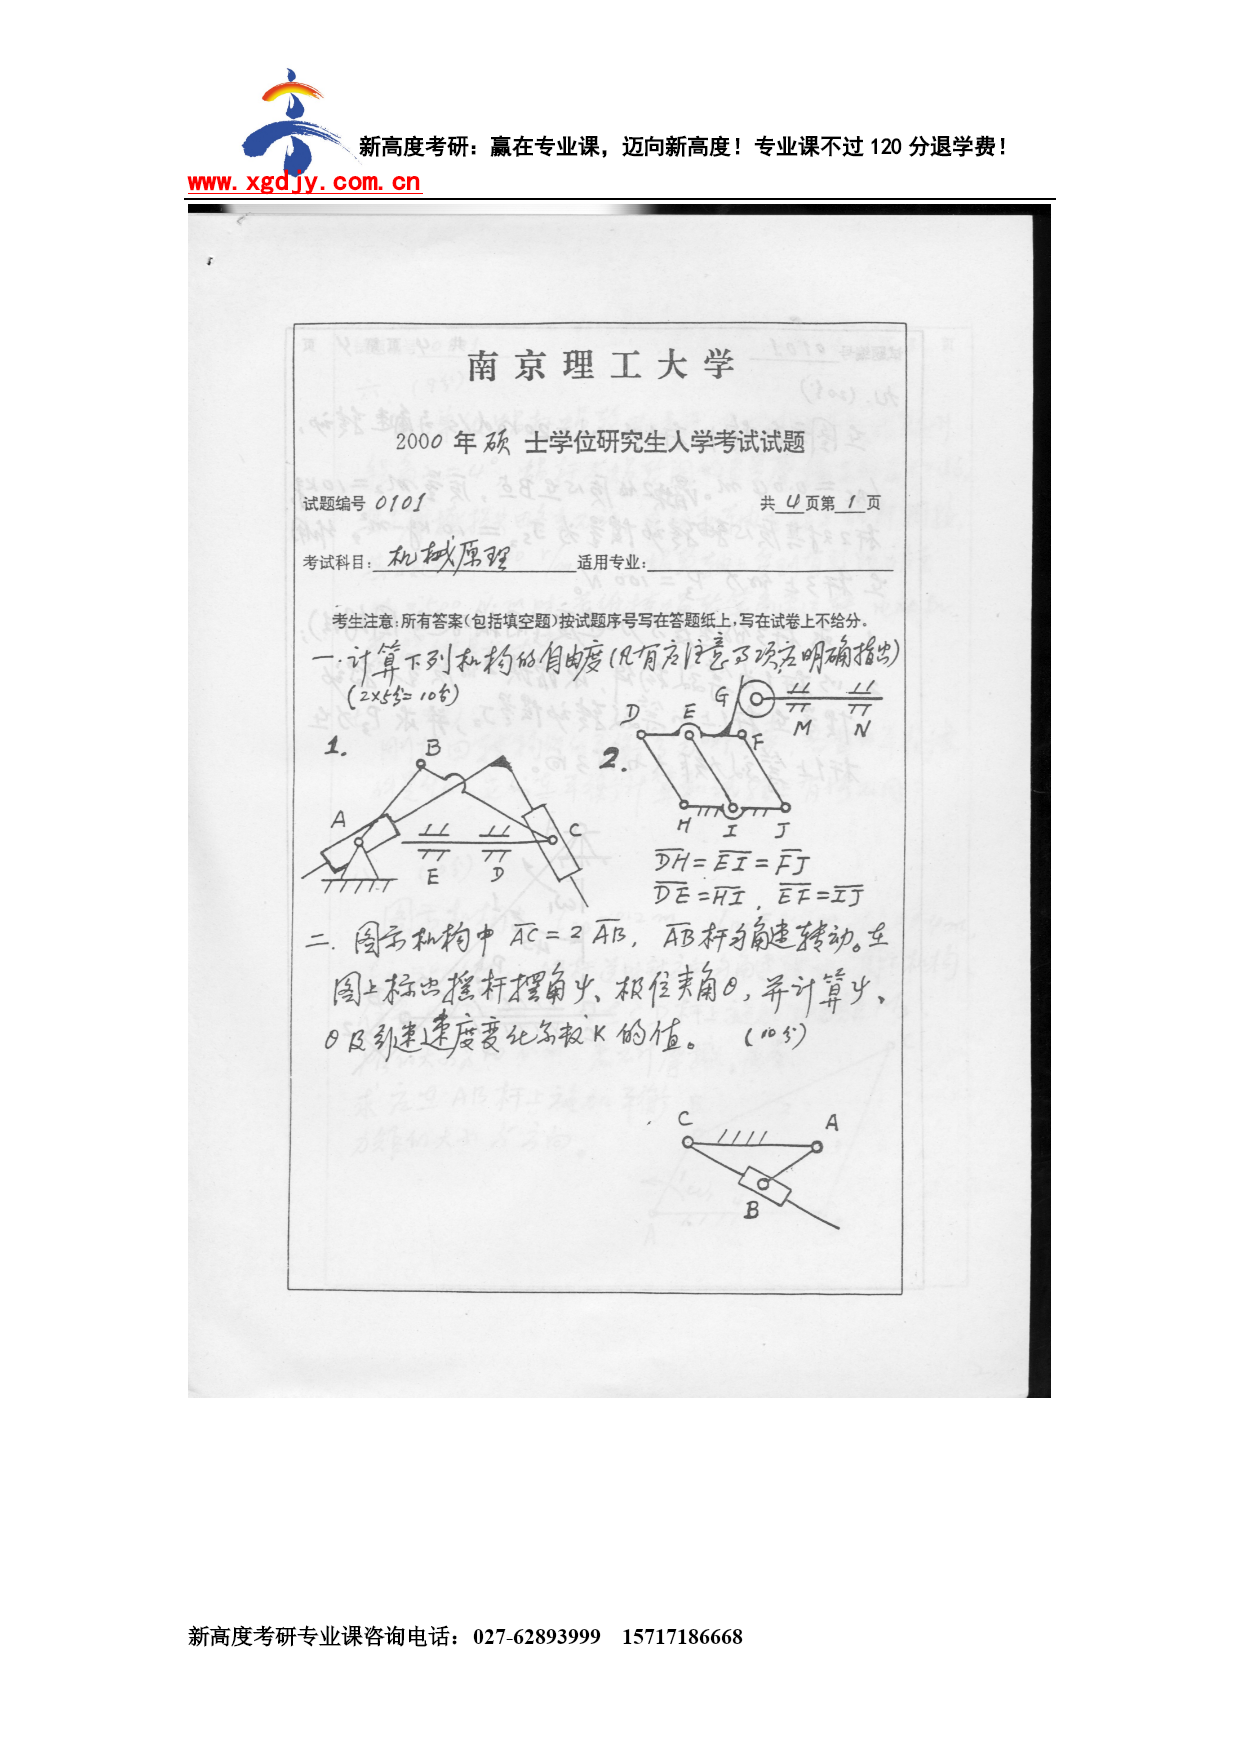 新高度考研：赢在专业课，迈向新高度！专业课不过 120 分退学费！
www.xgdjy.com.cn
南京理工大学
2000 年硕士学位研究生入学考试试题
试题编号 0101 共 4 页第 1 页
考试科目：机械原理 适用专业：
考生注意：所有答案（包括填空题）按试题序号写在答题纸上，写在试卷上不给分。
一.计算下列机构的自由度（凡有应注意事项应明确指出）
（2×5分=10分）
1.
A
B
C
E
D
2.
D
E
G
F
M
N
H
I
J
DH=EI=FJ
DE=HI，EF=IJ
二.图示机构中 AC=2AB，AB杆匀角速转动。在
图上标出摇杆摆角ψ、极位夹角θ，并计算ψ、
θ及行速速度变化系数K的值。（10分）
C
A
B
新高度考研专业课咨询电话：027-62893999 15717186668